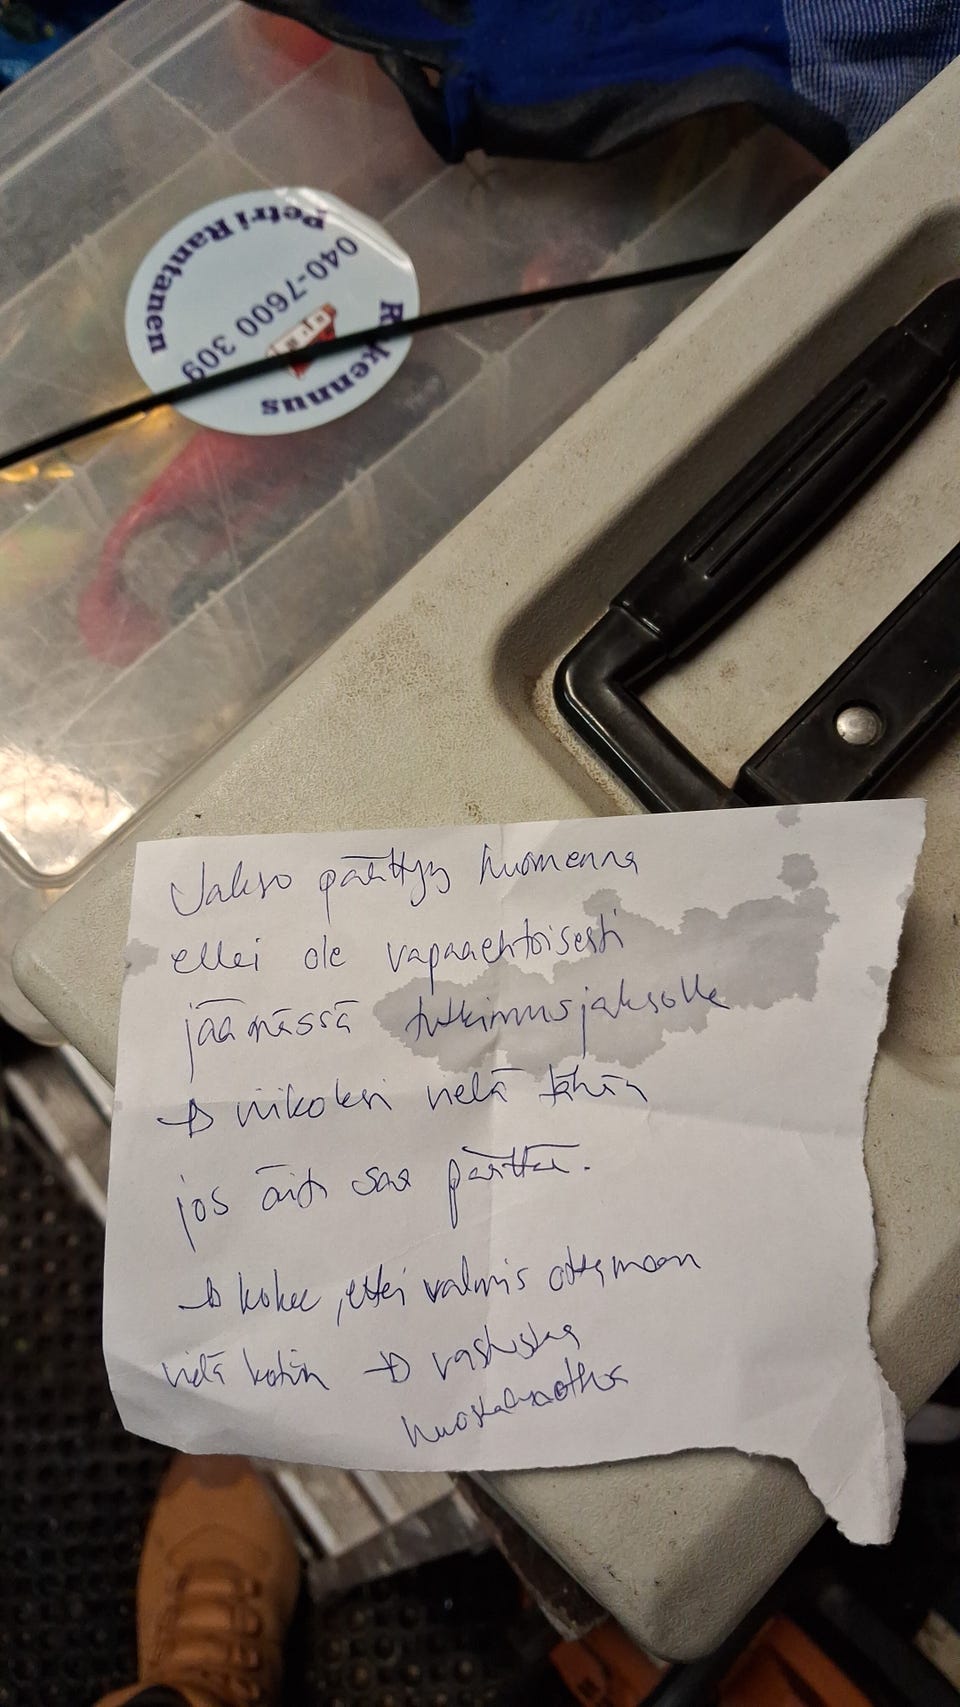 Rakennus
Petri Rantanen
040-7600 309
Jakso päättyy huomenna
ellei ole vapaaehtoisesti
jäämässä tutkimusjaksolle
→ viikoksi vielä tähän
jos äiti saa päättää.
→ kokee, ettei valmis ottamaan
vielä kotiin → vastustaa
huostaanottoa